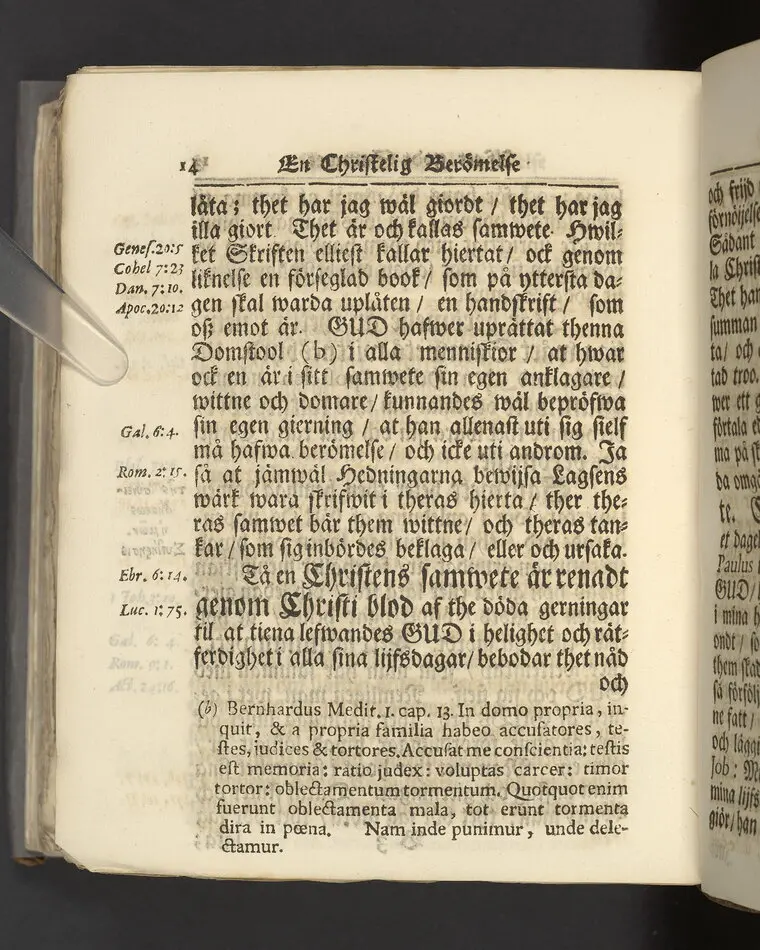 14 En Christelig Berömelse
låta; thet har jag wäl giordt / thet har jag
illa giort. Thet är och kallas samwete. Hwil-
Genes. 20:5 ket Skriften elliest kallar hiertat / ock genom
Cohel 7:23 liknelse en förseglad book / som på yttersta da-
Dan. 7:10. gen skal warda uplåten / en handskrift / som
Apoc. 20:12 oß emot är. GUD hafwer uprättat thenna
Domstool (b) i alla menniskior / at hwar
ock en är i sitt samwete sin egen anklagare /
wittne och domare / kunnandes wäl bepröfwa
Gal. 6:4. sin egen gierning / at han allenast uti sig sielf
må hafwa berömelse / och icke uti androm. Ja
Rom. 2:15. så at jämwäl Hedningarna bewijsa Lagsens
wärk wara skrifwit i theras hierta / ther the-
ras samwet bär them wittne / och theras tan-
kar / som sig inbördes beklaga / eller och ursaka.
Ebr. 6:14. Tå en Christens samwete är renadt
Luc. 1:75. genom Christi blod af the döda gerningar
til at tiena lefwandes GUD i helighet och rät-
ferdighet i alla sina lijfsdagar / bebodar thet nåd
och
(b) Bernhardus Medit. 1. cap. 13. In domo propria, in-
quit, & a propria familia habeo accuſatores, te-
ſtes, judices & tortores. Accuſat me conſcientia: teſtis
eſt memoria: ratio judex: voluptas carcer: timor
tortor: oblectamentum tormentum. Quotquot enim
fuerunt oblectamenta mala, tot erunt tormenta
dira in pœna. Nam inde punimur, unde dele-
ctamur.
och frijd
förnöijelse
Sådant
la Christ
Thet har
summan
ta / och
tad troo.
wer ett g
förtala
ma på
da omgå
te.
et dagel
Paulus
GUD /
i mina h
ondt / so
them skad
så förföl
ne fatt /
och lägg
Job: M
mina lijfs
giör / han